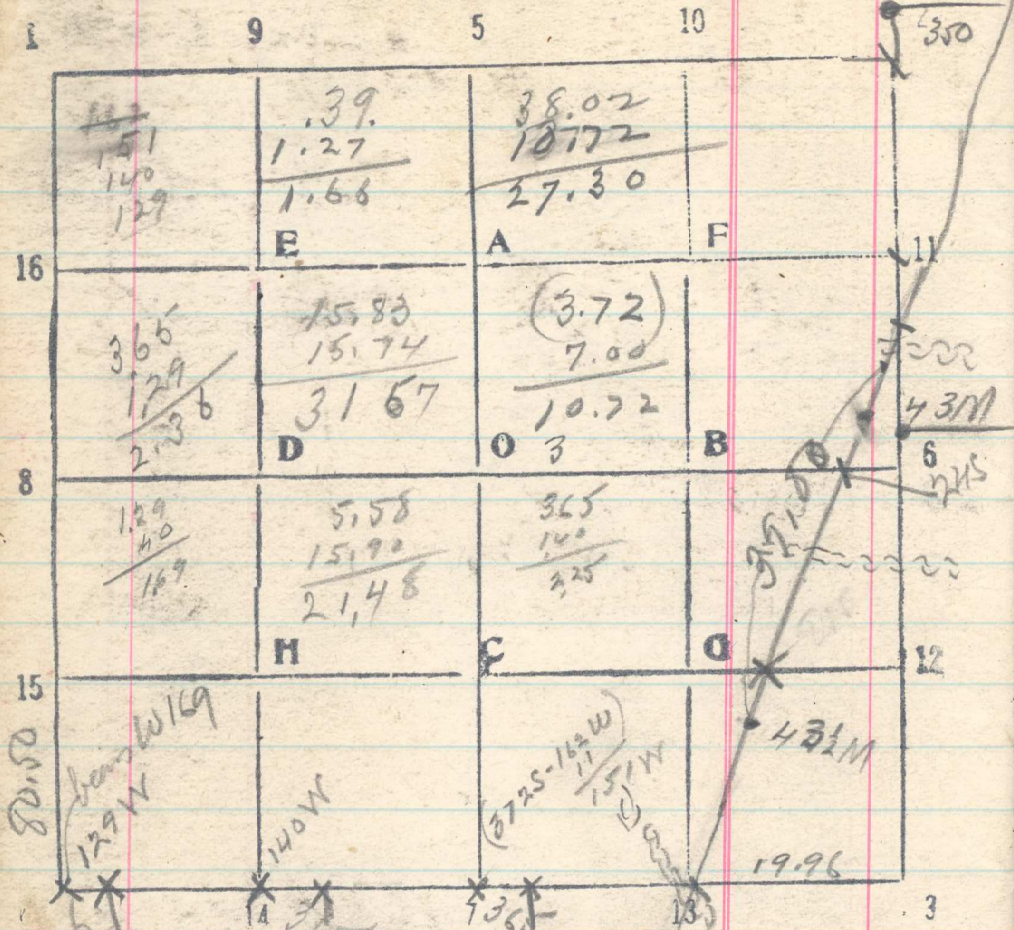 1 9 5 10
350
151
140
129
.39.
1.27
1.66
38.02
10.72
27.30
E A F
16 11
365
1.29
2.36
15.83
15.74
31 67
(3.72)
7.00
10.72
3
43M
D O B
8 6
1.29
40
169
5.58
15.90
21,48
365
140
2,25
H C G
15 12
80.50
bears W169
129 W
140 W
(3725-162W)
11
151 W
43½M
19.96
14 7 13 3